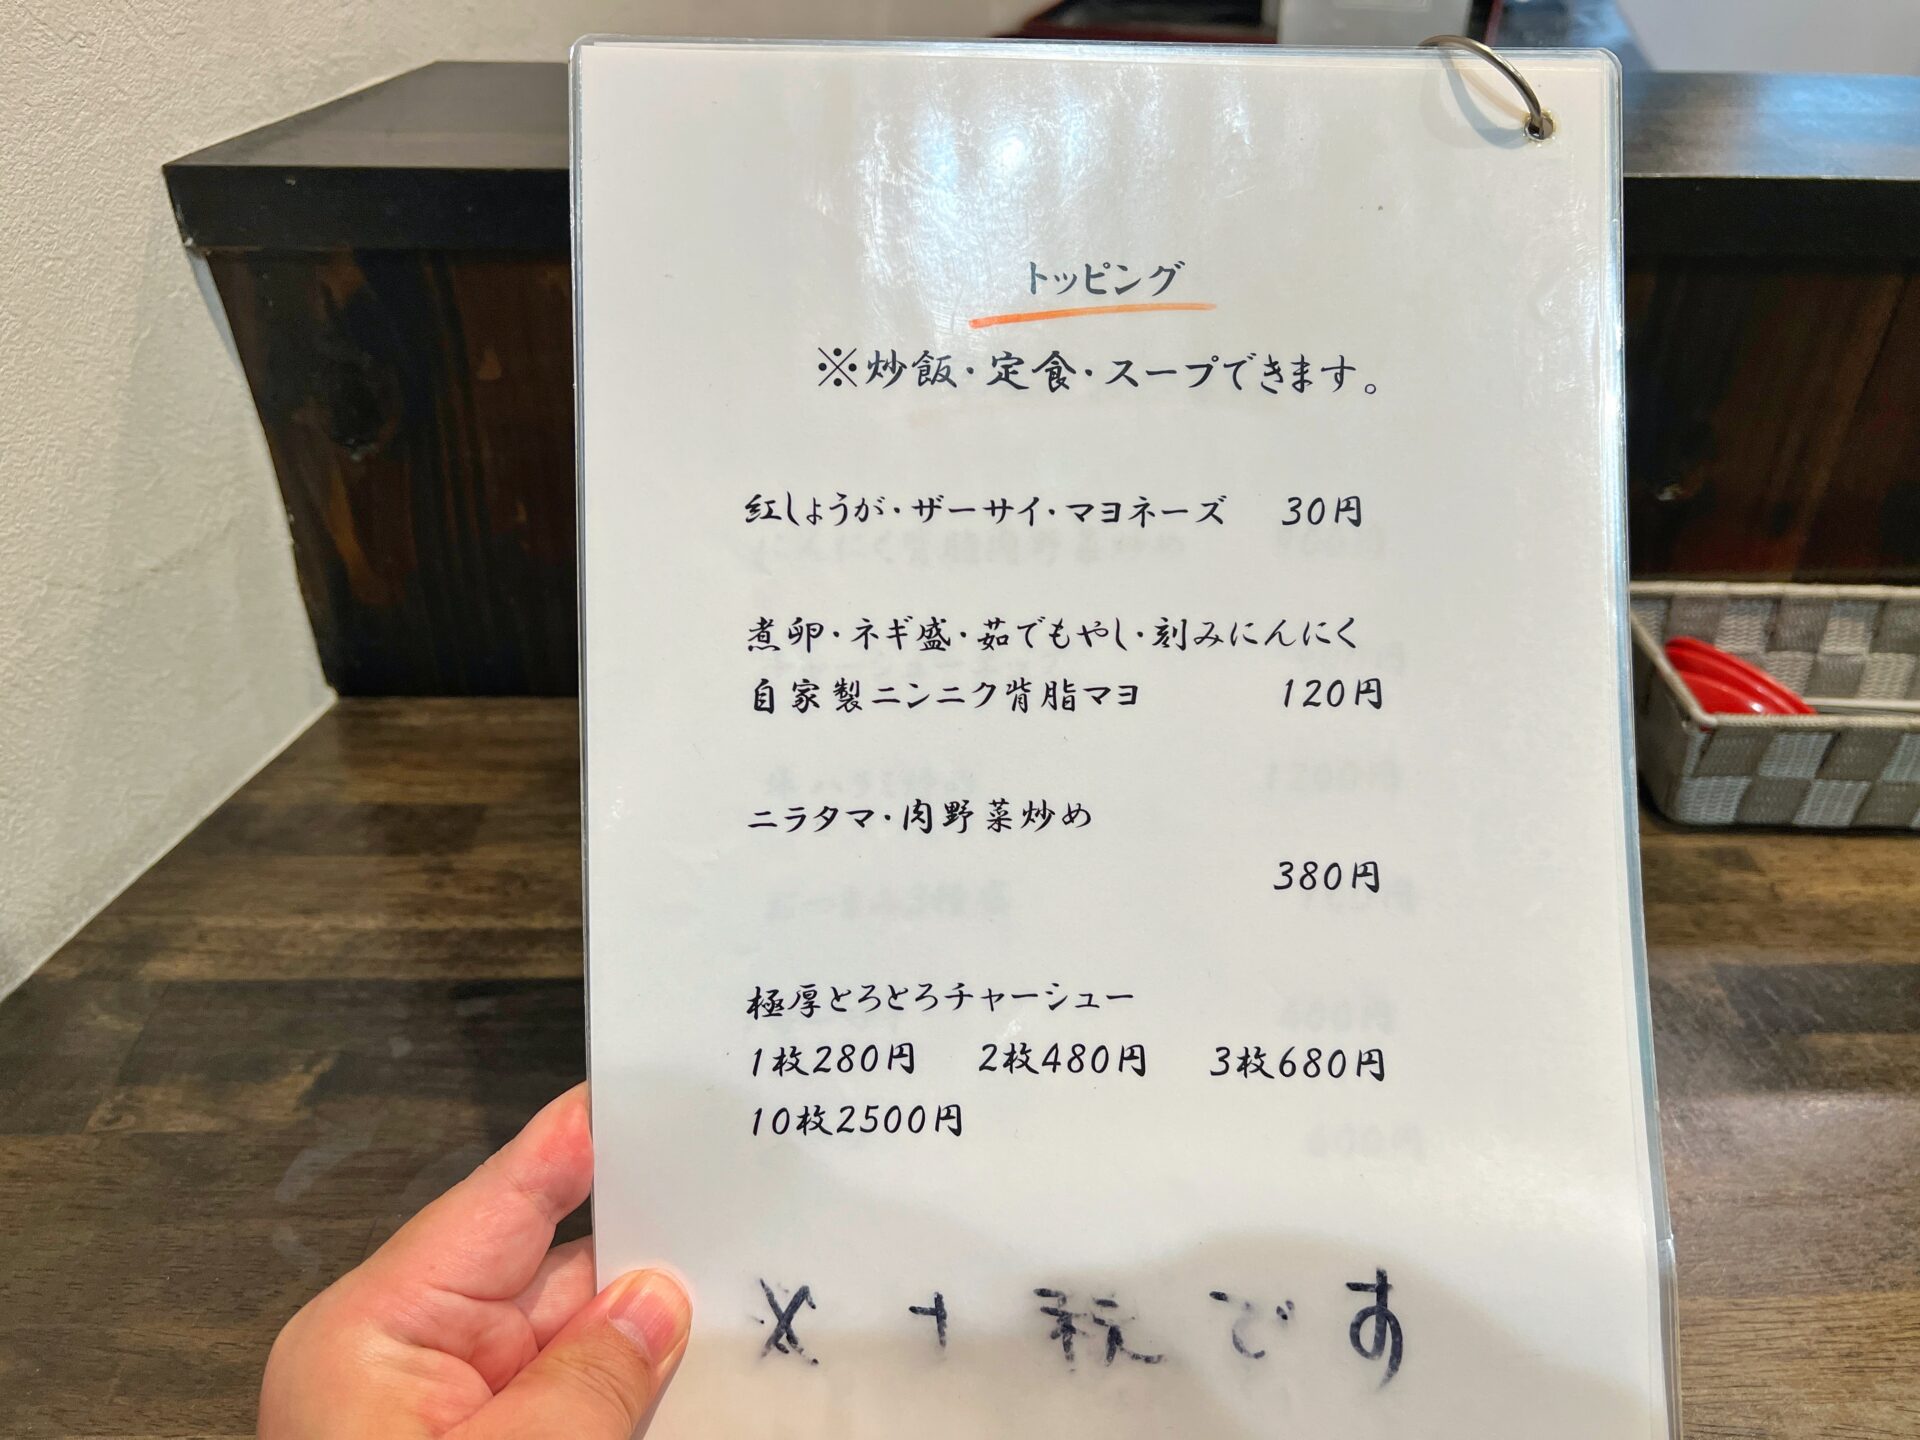 トッピング
※炒飯・定食・スープできます。
紅しょうが・ザーサイ・マヨネーズ 30円
煮卵・ネギ盛・茹でもやし・刻みにんにく
自家製ニンニク背脂マヨ 120円
ニラタマ・肉野菜炒め
380円
極厚とろとろチャーシュー
1枚280円 2枚480円 3枚680円
10枚2500円
※+税です